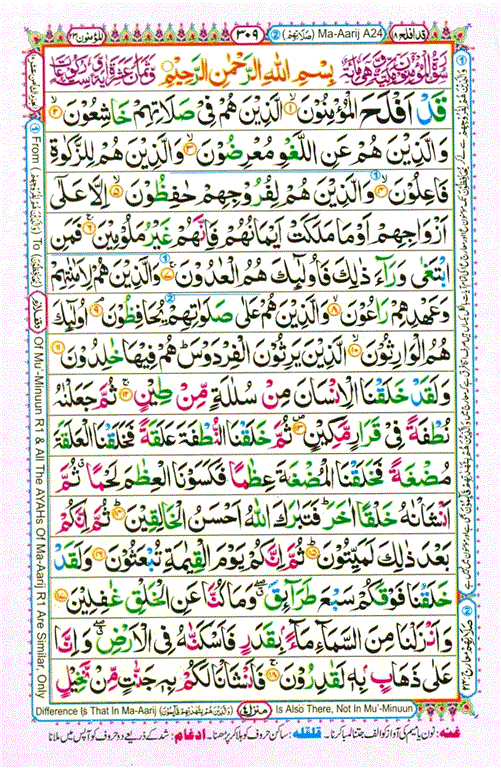 قد افلح ۱۸ Ma-Aarij A24 (صَلَاتِهِمْ) ۳۰۹ المؤمنون ۲۳
بِسْمِ اللهِ الرَّحْمٰنِ الرَّحِيْمِ
قَدْ اَفْلَحَ الْمُؤْمِنُوْنَ ۱ الَّذِيْنَ هُمْ فِيْ صَلَاتِهِمْ خَاشِعُوْنَ ۲
وَالَّذِيْنَ هُمْ عَنِ اللَّغْوِ مُعْرِضُوْنَ ۳ وَالَّذِيْنَ هُمْ لِلزَّكٰوةِ
فَاعِلُوْنَ ۴ وَالَّذِيْنَ هُمْ لِفُرُوْجِهِمْ حٰفِظُوْنَ ۵ اِلَّا عَلٰٓى
اَزْوَاجِهِمْ اَوْ مَا مَلَكَتْ اَيْمَانُهُمْ فَاِنَّهُمْ غَيْرُ مَلُوْمِيْنَ ۶ فَمَنِ
ابْتَغٰى وَرَآءَ ذٰلِكَ فَاُولٰٓئِكَ هُمُ الْعٰدُوْنَ ۷ وَالَّذِيْنَ هُمْ لِاَمٰنٰتِهِمْ
وَعَهْدِهِمْ رَاعُوْنَ ۸ وَالَّذِيْنَ هُمْ عَلٰى صَلَوٰتِهِمْ يُحَافِظُوْنَ ۹ اُولٰٓئِكَ
هُمُ الْوَارِثُوْنَ ۱۰ الَّذِيْنَ يَرِثُوْنَ الْفِرْدَوْسَ هُمْ فِيْهَا خٰلِدُوْنَ ۱۱
وَلَقَدْ خَلَقْنَا الْاِنْسَانَ مِنْ سُلٰلَةٍ مِّنْ طِيْنٍ ۱۲ ثُمَّ جَعَلْنٰهُ
نُطْفَةً فِيْ قَرَارٍ مَّكِيْنٍ ۱۳ ثُمَّ خَلَقْنَا النُّطْفَةَ عَلَقَةً فَخَلَقْنَا الْعَلَقَةَ
مُضْغَةً فَخَلَقْنَا الْمُضْغَةَ عِظٰمًا فَكَسَوْنَا الْعِظٰمَ لَحْمًا ثُمَّ
اَنْشَاْنٰهُ خَلْقًا اٰخَرَ فَتَبٰرَكَ اللهُ اَحْسَنُ الْخَالِقِيْنَ ۱۴ ثُمَّ اِنَّكُمْ
بَعْدَ ذٰلِكَ لَمَيِّتُوْنَ ۱۵ ثُمَّ اِنَّكُمْ يَوْمَ الْقِيٰمَةِ تُبْعَثُوْنَ ۱۶ وَلَقَدْ
خَلَقْنَا فَوْقَكُمْ سَبْعَ طَرَآئِقَ وَمَا كُنَّا عَنِ الْخَلْقِ غٰفِلِيْنَ ۱۷
وَاَنْزَلْنَا مِنَ السَّمَآءِ مَآءً بِقَدَرٍ فَاَسْكَنّٰهُ فِي الْاَرْضِ وَاِنَّا
عَلٰى ذَهَابٍ بِهٖ لَقٰدِرُوْنَ ۱۸ فَاَنْشَاْنَا لَكُمْ بِهٖ جَنّٰتٍ مِّنْ نَّخِيْلٍ
From
To
Of Mu'-Minuun R1 & All The AYAHs Of Ma-Aarij R1 Are Similar, Only
Difference Is That In Ma-Aarij (وَالَّذِيْنَ هُمْ بِشَهٰدٰتِهِمْ قَآئِمُوْنَ) منزل۴ Is Also There, Not In Mu'-Minuun
غنه: نون یا میم کی آواز کو الف جتنا لمبا کرنا۔ قلقله: ساکن حروف کو ہلا کر پڑھنا۔ ادغام: شد کے ذریعے دو حروف کو آپس میں ملانا